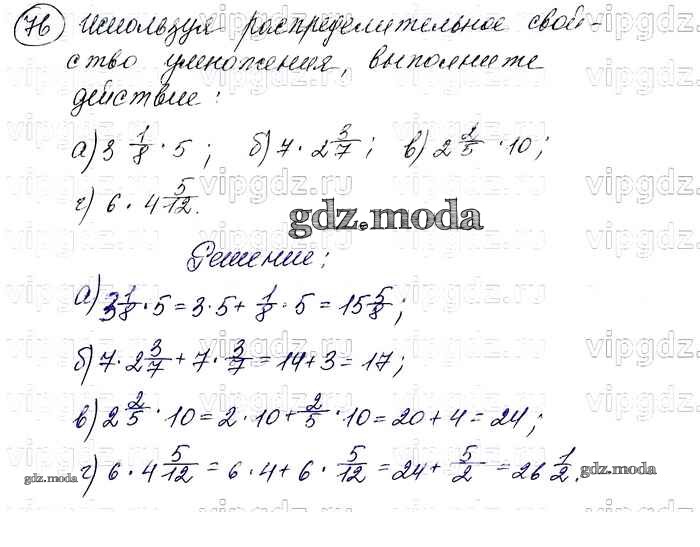 76 Используя распределительное свой-
ство умножения, выполните
действие:
а) 3 1/8 · 5; б) 7 · 2 3/7; в) 2 2/5 · 10;
г) 6 · 4 5/12.
gdz.moda
Решение:
а) 3 1/8 · 5 = 3·5 + 1/8 · 5 = 15 5/8;
б) 7 · 2 3/7 + 7 · 3/7 = 14 + 3 = 17;
в) 2 2/5 · 10 = 2 · 10 + 2/5 · 10 = 20 + 4 = 24;
г) 6 · 4 5/12 = 6 · 4 + 6 · 5/12 = 24 + 5/2 = 26 1/2.
gdz.moda
gdz.moda
vipgdz.ru